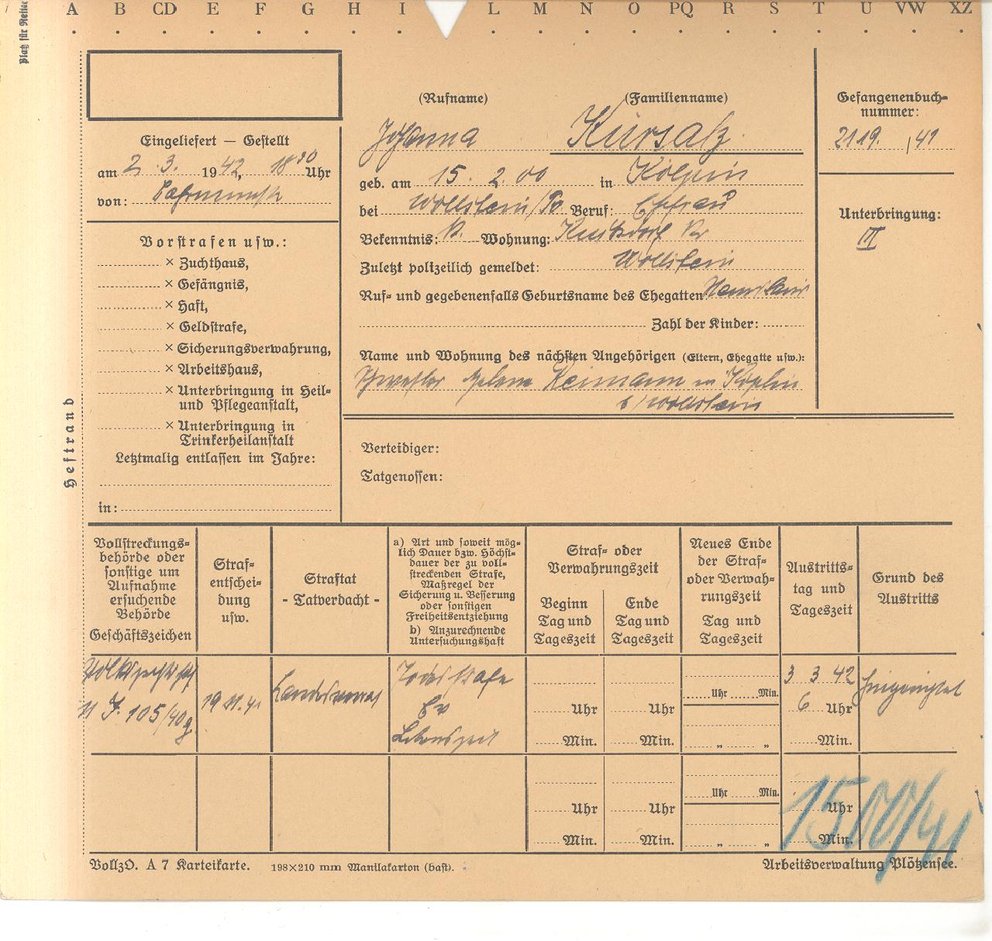 Platz für
A B CD E F G H I L M N O PQ R S T U VW XZ
(Rufname) (Familienname)
Gefangenenbuch-
nummer:
Johanna Kursatz
2119. , 41
Eingeliefert — Gestellt
am 2. 3. 1942, 18 00 Uhr
von:
geb. am 15. 2 00 in Kölpin
bei Wollstein/Po. Beruf: Ehefrau
Bekenntnis: k. Wohnung:
Zuletzt polizeilich gemeldet: Wollstein
Unterbringung:
III
Vorstrafen usw.:
× Zuchthaus,
× Gefängnis,
× Haft,
× Geldstrafe,
× Sicherungsverwahrung,
× Arbeitshaus,
× Unterbringung in Heil-
und Pflegeanstalt,
× Unterbringung in
Trinkerheilanstalt
Letztmalig entlassen im Jahre:
in:
Ruf- und gegebenenfalls Geburtsname des Ehegatten
Zahl der Kinder:
Name und Wohnung des nächsten Angehörigen (Eltern, Ehegatte usw.):
Schwester Helene Reimann in Köplin
b/Wollstein
Verteidiger:
Tatgenossen:
Heftrand
Vollstreckungs-
behörde oder
sonstige um
Aufnahme
ersuchende
Behörde
Geschäftszeichen
Straf-
entschei-
dung
usw.
Straftat
- Tatverdacht -
a) Art und soweit mög-
lich Dauer bzw. Höchst-
dauer der zu voll-
streckenden Strafe,
Maßregel der
Sicherung u. Besserung
oder sonstigen
Freiheitsentziehung
b) Anzurechnende
Untersuchungshaft
Straf- oder
Verwahrungszeit
Beginn
Tag und
Tageszeit
Ende
Tag und
Tageszeit
Neues Ende
der Straf-
oder Verwah-
rungszeit
Tag und
Tageszeit
Austritts-
tag und
Tageszeit
Grund des
Austritts
Volksgerichtshof
11 J. 105/40g
19.11.41
Landesverrat
Todesstrafe
Ev
Lebenszeit
Uhr
Min.
Uhr
Min.
Uhr Min.
" "
3 3 42
6 Uhr
Min.
hingerichtet
Uhr
Min.
Uhr
Min.
Uhr Min.
" "
Uhr
Min.
1500/41
VollzO. A 7 Karteikarte. 198×210 mm Manilakarton (hast).
Arbeitsverwaltung Plötzensee.